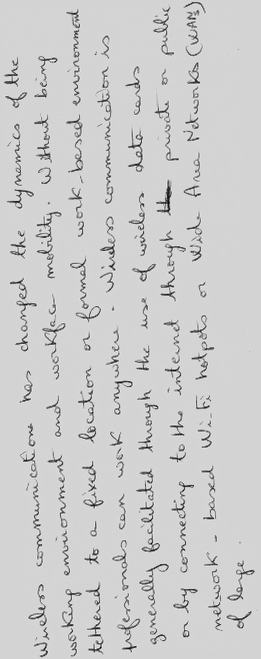 Wireless communications has changed the dynamics of the
working environment and workface mobility. Without being
tethered to a fixed location or formal work-based environment
professionals can work anywhere. Wireless communication is
generally facilitated through the use of wireless data cards
or by connecting to the internet through private or public
network-based Wi-Fi hotpots or Wide Area Networks (WANs)
of large.